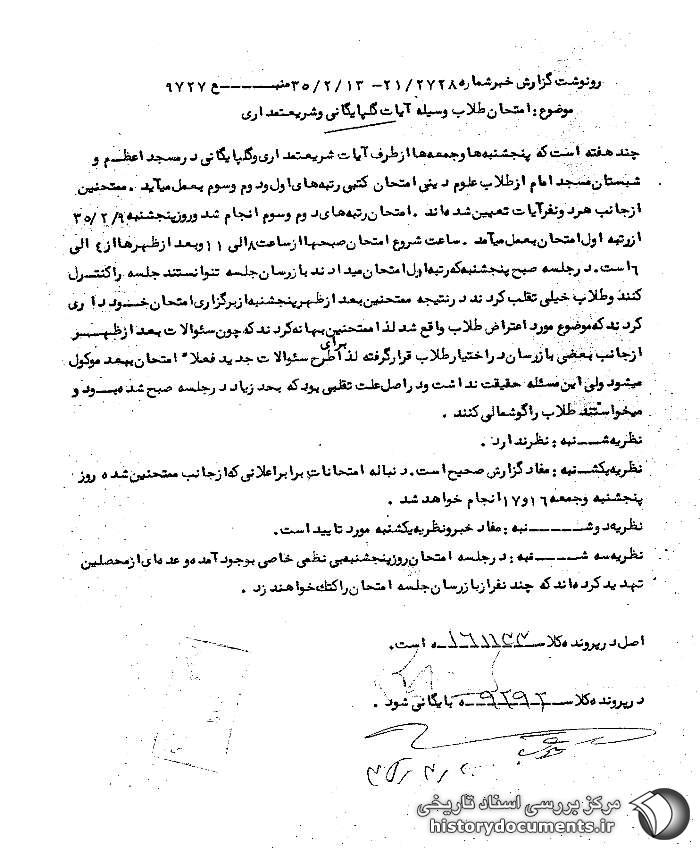 رونوشت گزارش خبر شماره ۲۱/۲۷۲۸ - ۳۵/۲/۱۳ منبـــــع ۹۷۲۷
موضوع : امتحان طلاب وسیله آیات گلپایگانی و شریعتمداری
چند هفته است که پنجشنبه‌ها و جمعه‌ها از طرف آیات شریعتمداری و گلپایگانی در مسجد اعظـم و
شبستان مسجد امام از طلاب علوم دینی امتحان کتبی رتبه‌های اول و دوم و سوم بعمل میآید . ممتحنین
از جانب هر دو نفر آیات تعیین شده‌اند . امتحان رتبه‌های دوم و سوم انجام شد و روز پنجشنبه ۳۵/۲/۹
از رتبه اول امتحان بعمل میآمد . ساعت شروع امتحان صبحها از ساعت ۸ الی ۱۱ و بعد از ظهرها از ۴ الی
۶ است . در جلسه صبح پنجشنبه که رتبه اول امتحان میدادند بازرسان جلسه نتوانستند جلسه را کنتـرل
کنند و طلاب خیلی تقلب کردند در نتیجه ممتحنین بعد از ظهر پنجشنبه از برگزاری امتحان خــود داری
کردند که موضوع مورد اعتراض طلاب واقع شد لذا ممتحنین بهانه کردند که چون سئوالات بعد از ظهـــر
از جانب بعضی بازرسان در اختیار طلاب قرار گرفته لذا برای طرح سئوالات جدید فعلاً امتحان ببعد موکول
میشود ولی این مسئله حقیقت نداشت و در اصل علت تقلبی بود که بحد زیاد در جلسه صبح شده بــود و
میخواستند طلاب را گوشمالی کنند .
نظریه شـــنبه : نظر ندارد .
نظریه یکشـــنبه : مفاد گزارش صحیح است . دنباله امتحانات برابر اعلانی که از جانب ممتحنین شده روز
پنجشنبه و جمعه ۱۶ و ۱۷ انجام خواهد شد .
نظریه دوشــــــنبه : مفاد خبر و نظریه یکشنبه مورد تایید است .
نظریه سه شـــــنبه : در جلسه امتحان روز پنجشنبه بی نظمی خاصی بوجود آمده و عده‌ای از محصلین
تهدید کرده‌اند که چند نفر از بازرسان جلسه امتحان را کتک خواهند زد .
اصل در پرونده کلاســـــه است .
در پرونده کلاســـــه ۹۲۹۲ بایگانی شود .
مرکز بررسی اسناد تاریخی
historydocuments.ir